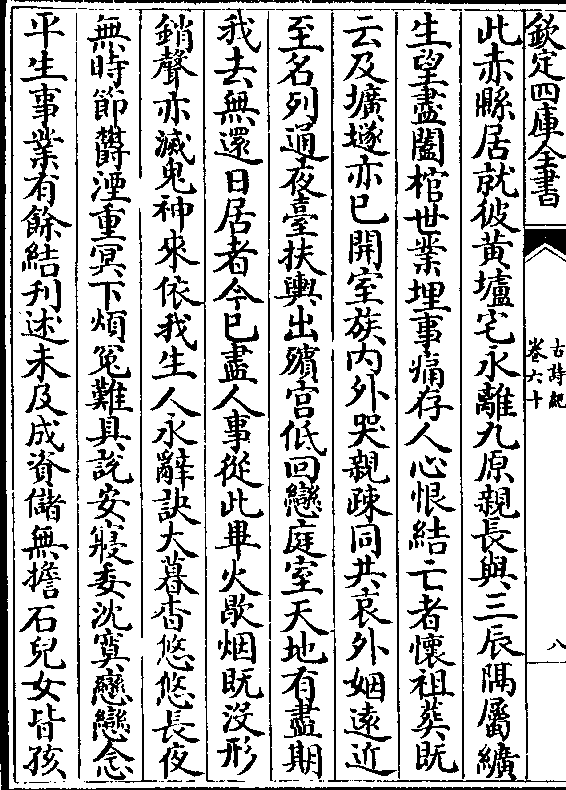 欽定四庫全書
古詩紀
卷六十
八
此赤縣居就彼黃壚宅永離九原親長與三辰隔屬纊
生望盡闔棺世業埋事痛存人心恨結亡者懷祖葬既
云及壙墬亦已開室族内外哭親疎同共哀外姻逺近
至名列通夜臺扶輿出殯宫低回戀庭室天地有盡期
我去無還日居者今已盡人事從此畢火歇烟既没形
銷聲亦滅鬼神來依我生人永辭訣大暮杳悠悠長夜
無時節鬱湮重冥下煩寃難具說安寢委沈寞戀戀念
平生事業有餘結刋述未及成資儲無擔石兒女皆孩